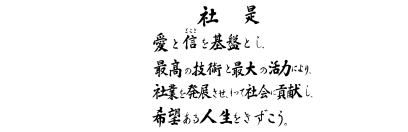 社是
愛と信を基盤とし、
最高の技術と最大の活力により、
社業を発展させ、もって社会に貢献し、
希望ある人生をきずこう。